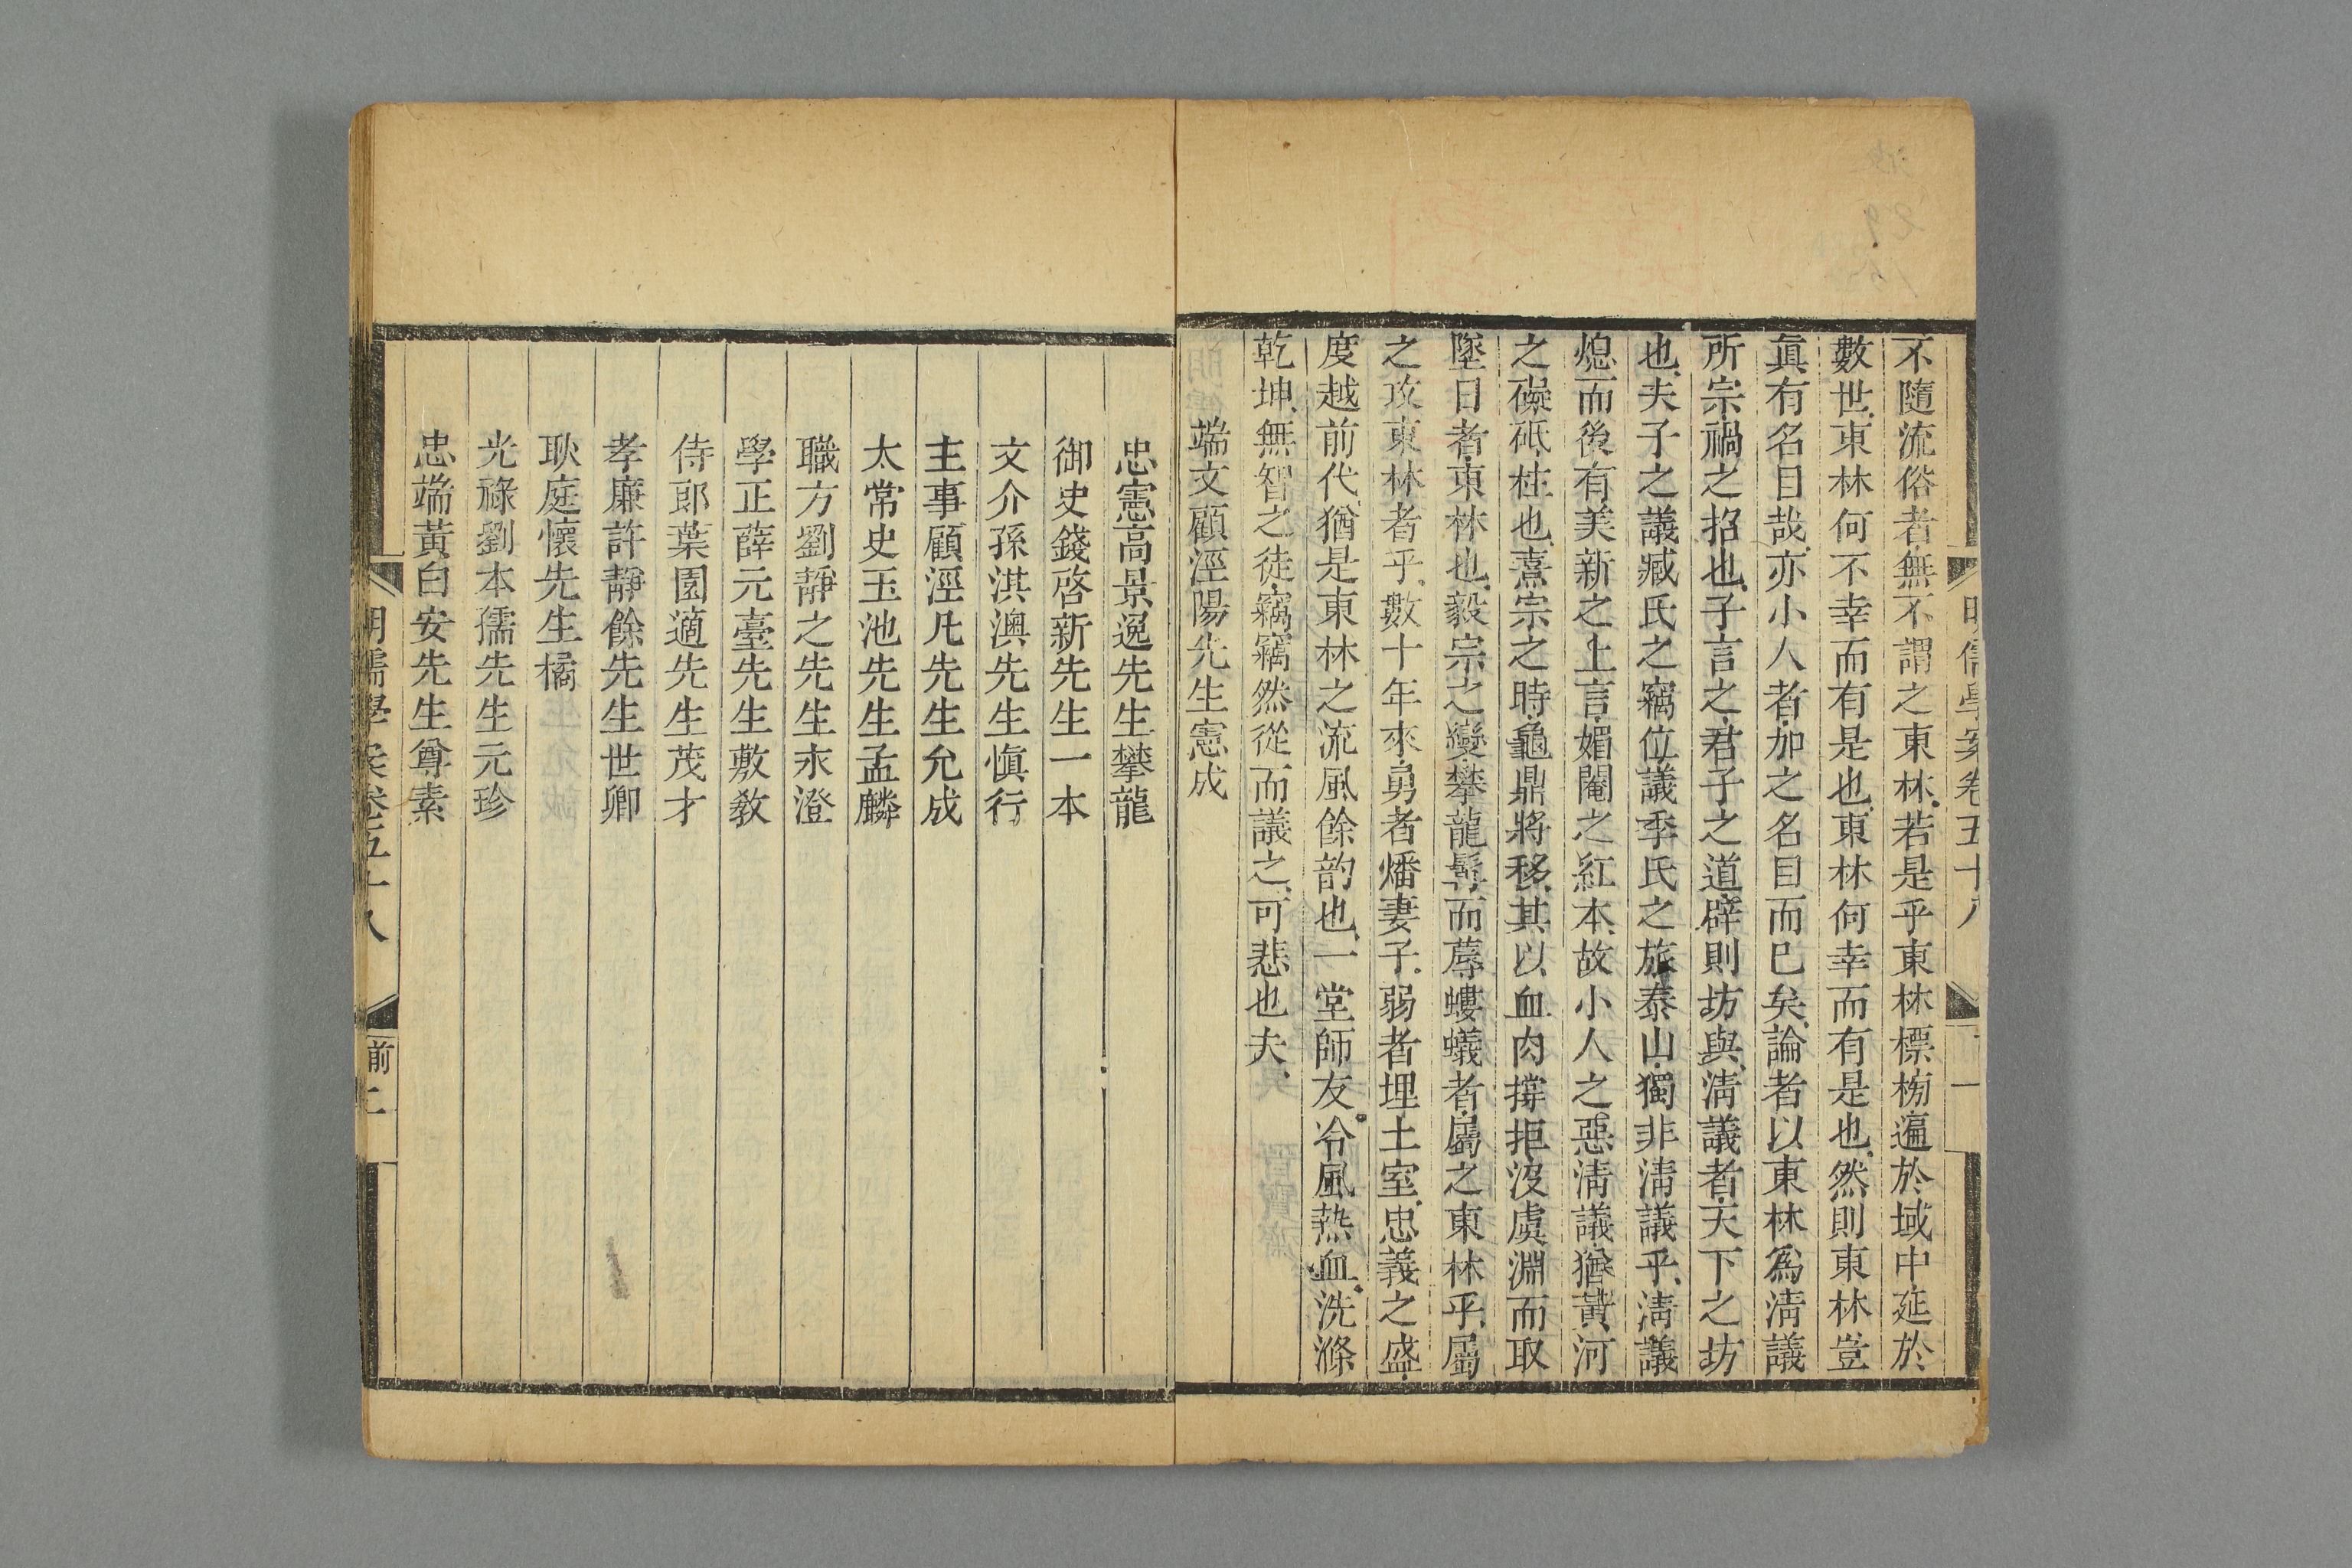 明儒學案卷五十八
一
不隨流俗者無不謂之東林若是乎東林標榜遍於域中延於
數世東林何不幸而有是也東林何幸而有是也然則東林豈
眞有名目哉亦小人者加之名目而已矣論者以東林爲淸議
所宗禍之招也子言之君子之道辟則坊與淸議者天下之坊
也夫子之議臧氏之竊位議季氏之旅泰山獨非淸議乎淸議
熄而後有美新之上言媚閹之紅本故小人之惡淸議猶黃河
之礙砥柱也熹宗之時龜鼎將移其以血肉撐拒沒虞淵而取
墜日者東林也毅宗之變攀龍髯而蓐螻蟻者屬之東林乎屬
之攻東林者乎數十年來勇者燔妻子弱者埋土室忠義之盛
度越前代猶是東林之流風餘韵也一堂師友冷風熱血洗滌
乾坤無智之徒竊竊然從而議之可悲也夫
端文顧涇陽先生憲成
忠憲高景逸先生攀龍
御史錢啓新先生一本
文介孫淇澳先生愼行
主事顧涇凡先生允成
太常史玉池先生孟麟
職方劉靜之先生永澄
學正薛元臺先生敷敎
侍郎葉園適先生茂才
孝廉許靜餘先生世卿
耿庭懷先生橘
光祿劉本孺先生元珍
忠端黃白安先生尊素
明儒學案卷五十八
前二